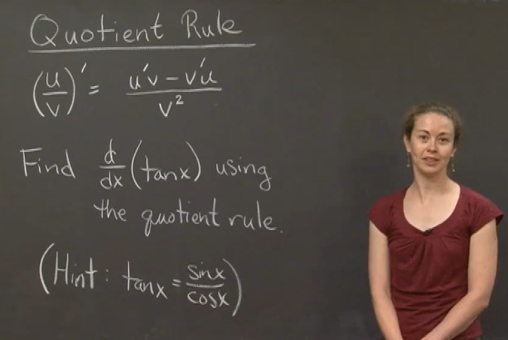 Quotient Rule
(u/v)' = (u'v - v'u)/v²
Find d/dx (tanx) using
the quotient rule.
(Hint: tanx = sinx/cosx)